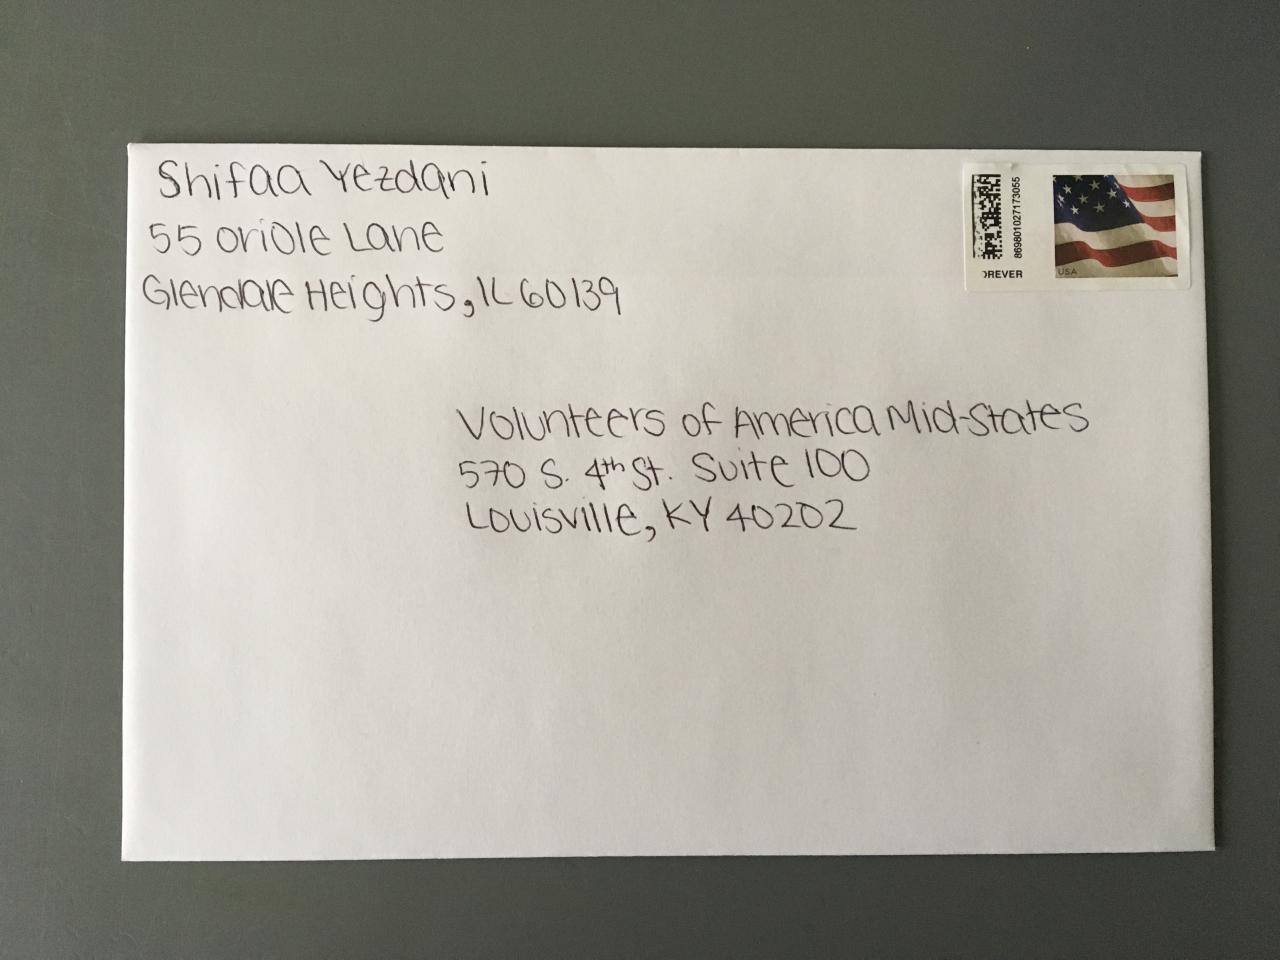 Shifaa Yezdani
55 Oriole Lane
Glendale Heights, IL 60139
869801027173055
OREVER
USA
Volunteers of America Mid-States
570 S. 4th St. Suite 100
Louisville, KY 40202